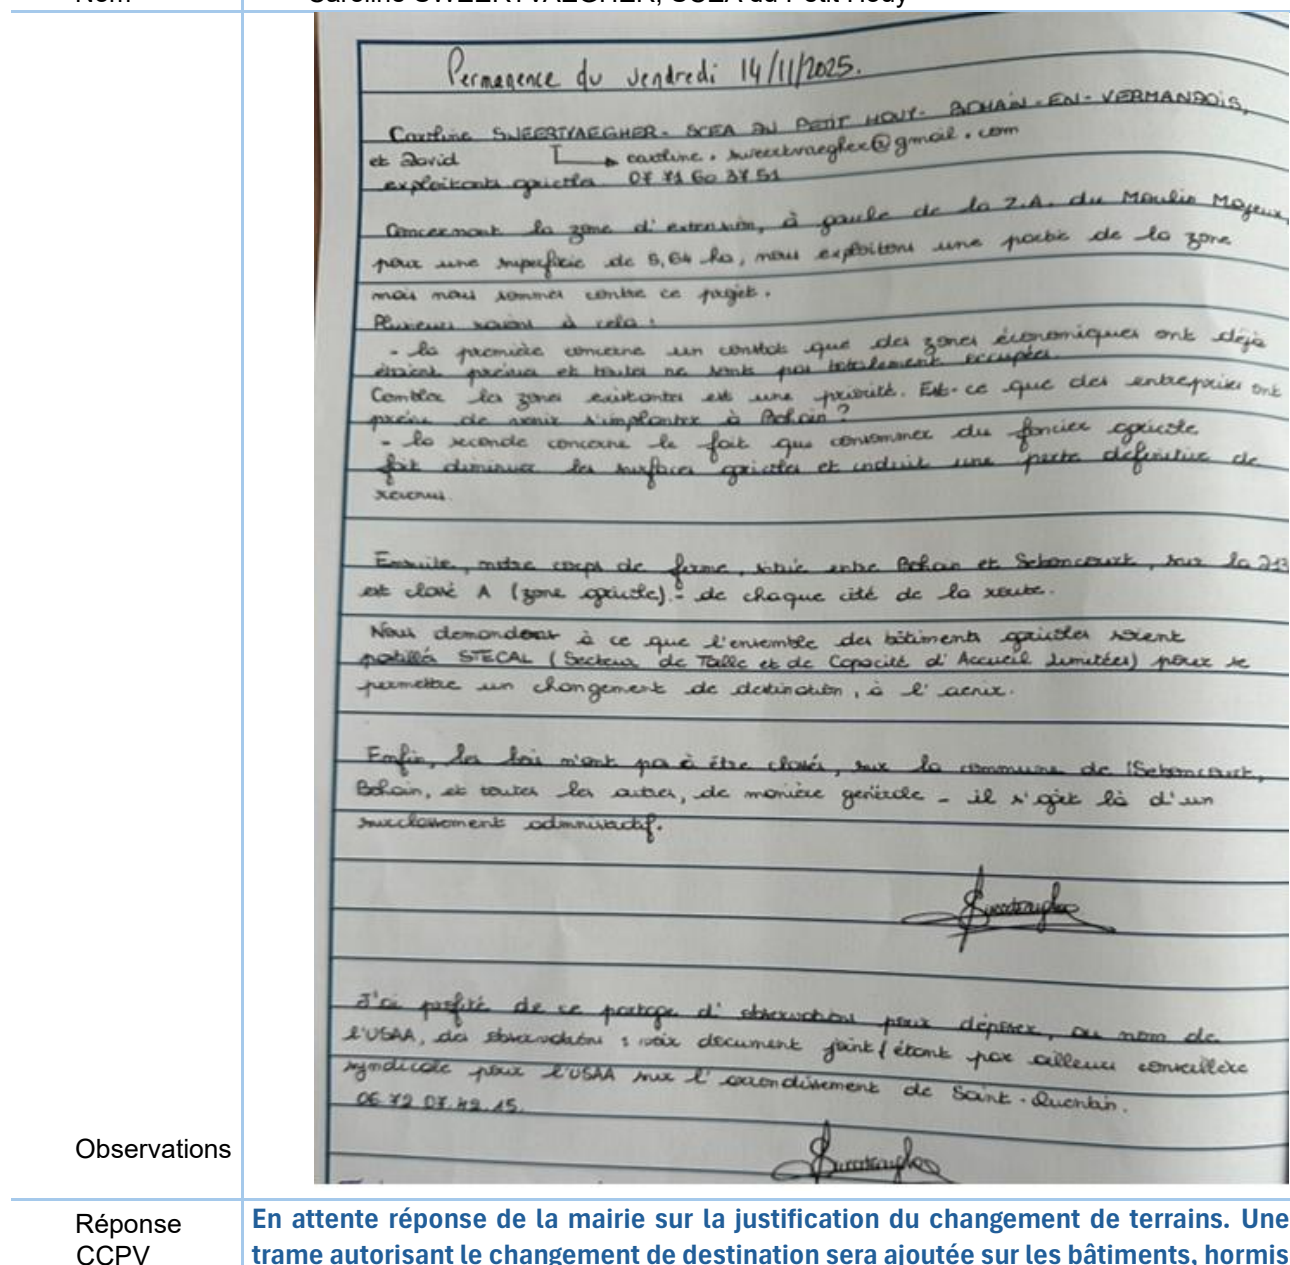 Nom Caroline SWEERTVAEGHER, SCEA du Petit Houy
Permanence du vendredi 14/11/2025.
Caroline SWEERTVAEGHER - SCEA DU PETIT HOUY - BOHAIN-EN-VERMANDOIS,
et David → caroline.sweertvaegher@gmail.com
exploitants agricoles 07 71 60 37 51
Concernant la zone d'extension, à gauche de la Z.A. du Moulin Mayeux,
pour une superficie de 5,64 ha, nous exploitons une partie de la zone
mais nous sommes contre ce projet.
Plusieurs raisons à cela :
- la première concerne un constat que des zones économiques ont déjà
étaient prévues et toutes ne sont pas totalement occupées.
Combler les zones existantes est une priorité. Est-ce que des entreprises ont
prévu de venir s'implanter à Bohain ?
- la seconde concerne le fait que consommer du foncier agricole
fait diminuer les surfaces agricoles et induit une perte définitive de
revenus.
Ensuite, notre corps de ferme, situé entre Bohain et Seboncourt, sur la D13
est classé A (zone agricole) - de chaque côté de la route.
Nous demandons à ce que l'ensemble des bâtiments agricoles soient
pastillés STECAL (Secteur de Taille et de Capacité d'Accueil Limitées) pour se
permettre un changement de destination, à l'avenir.
Enfin, les bois n'ont pas à être classés, sur la commune de Seboncourt,
Bohain, et toutes les autres, de manière générale - il s'agit là d'un
surclassement administratif.
J'ai profité de ce partage d'observations pour déposer, au nom de
l'USAA, des observations : voir document joint / étant par ailleurs conseillère
syndicale pour l'USAA sur l'arrondissement de Saint-Quentin.
06.72.07.42.15.
Observations
Réponse En attente réponse de la mairie sur la justification du changement de terrains. Une
CCPV trame autorisant le changement de destination sera ajoutée sur les bâtiments, hormis